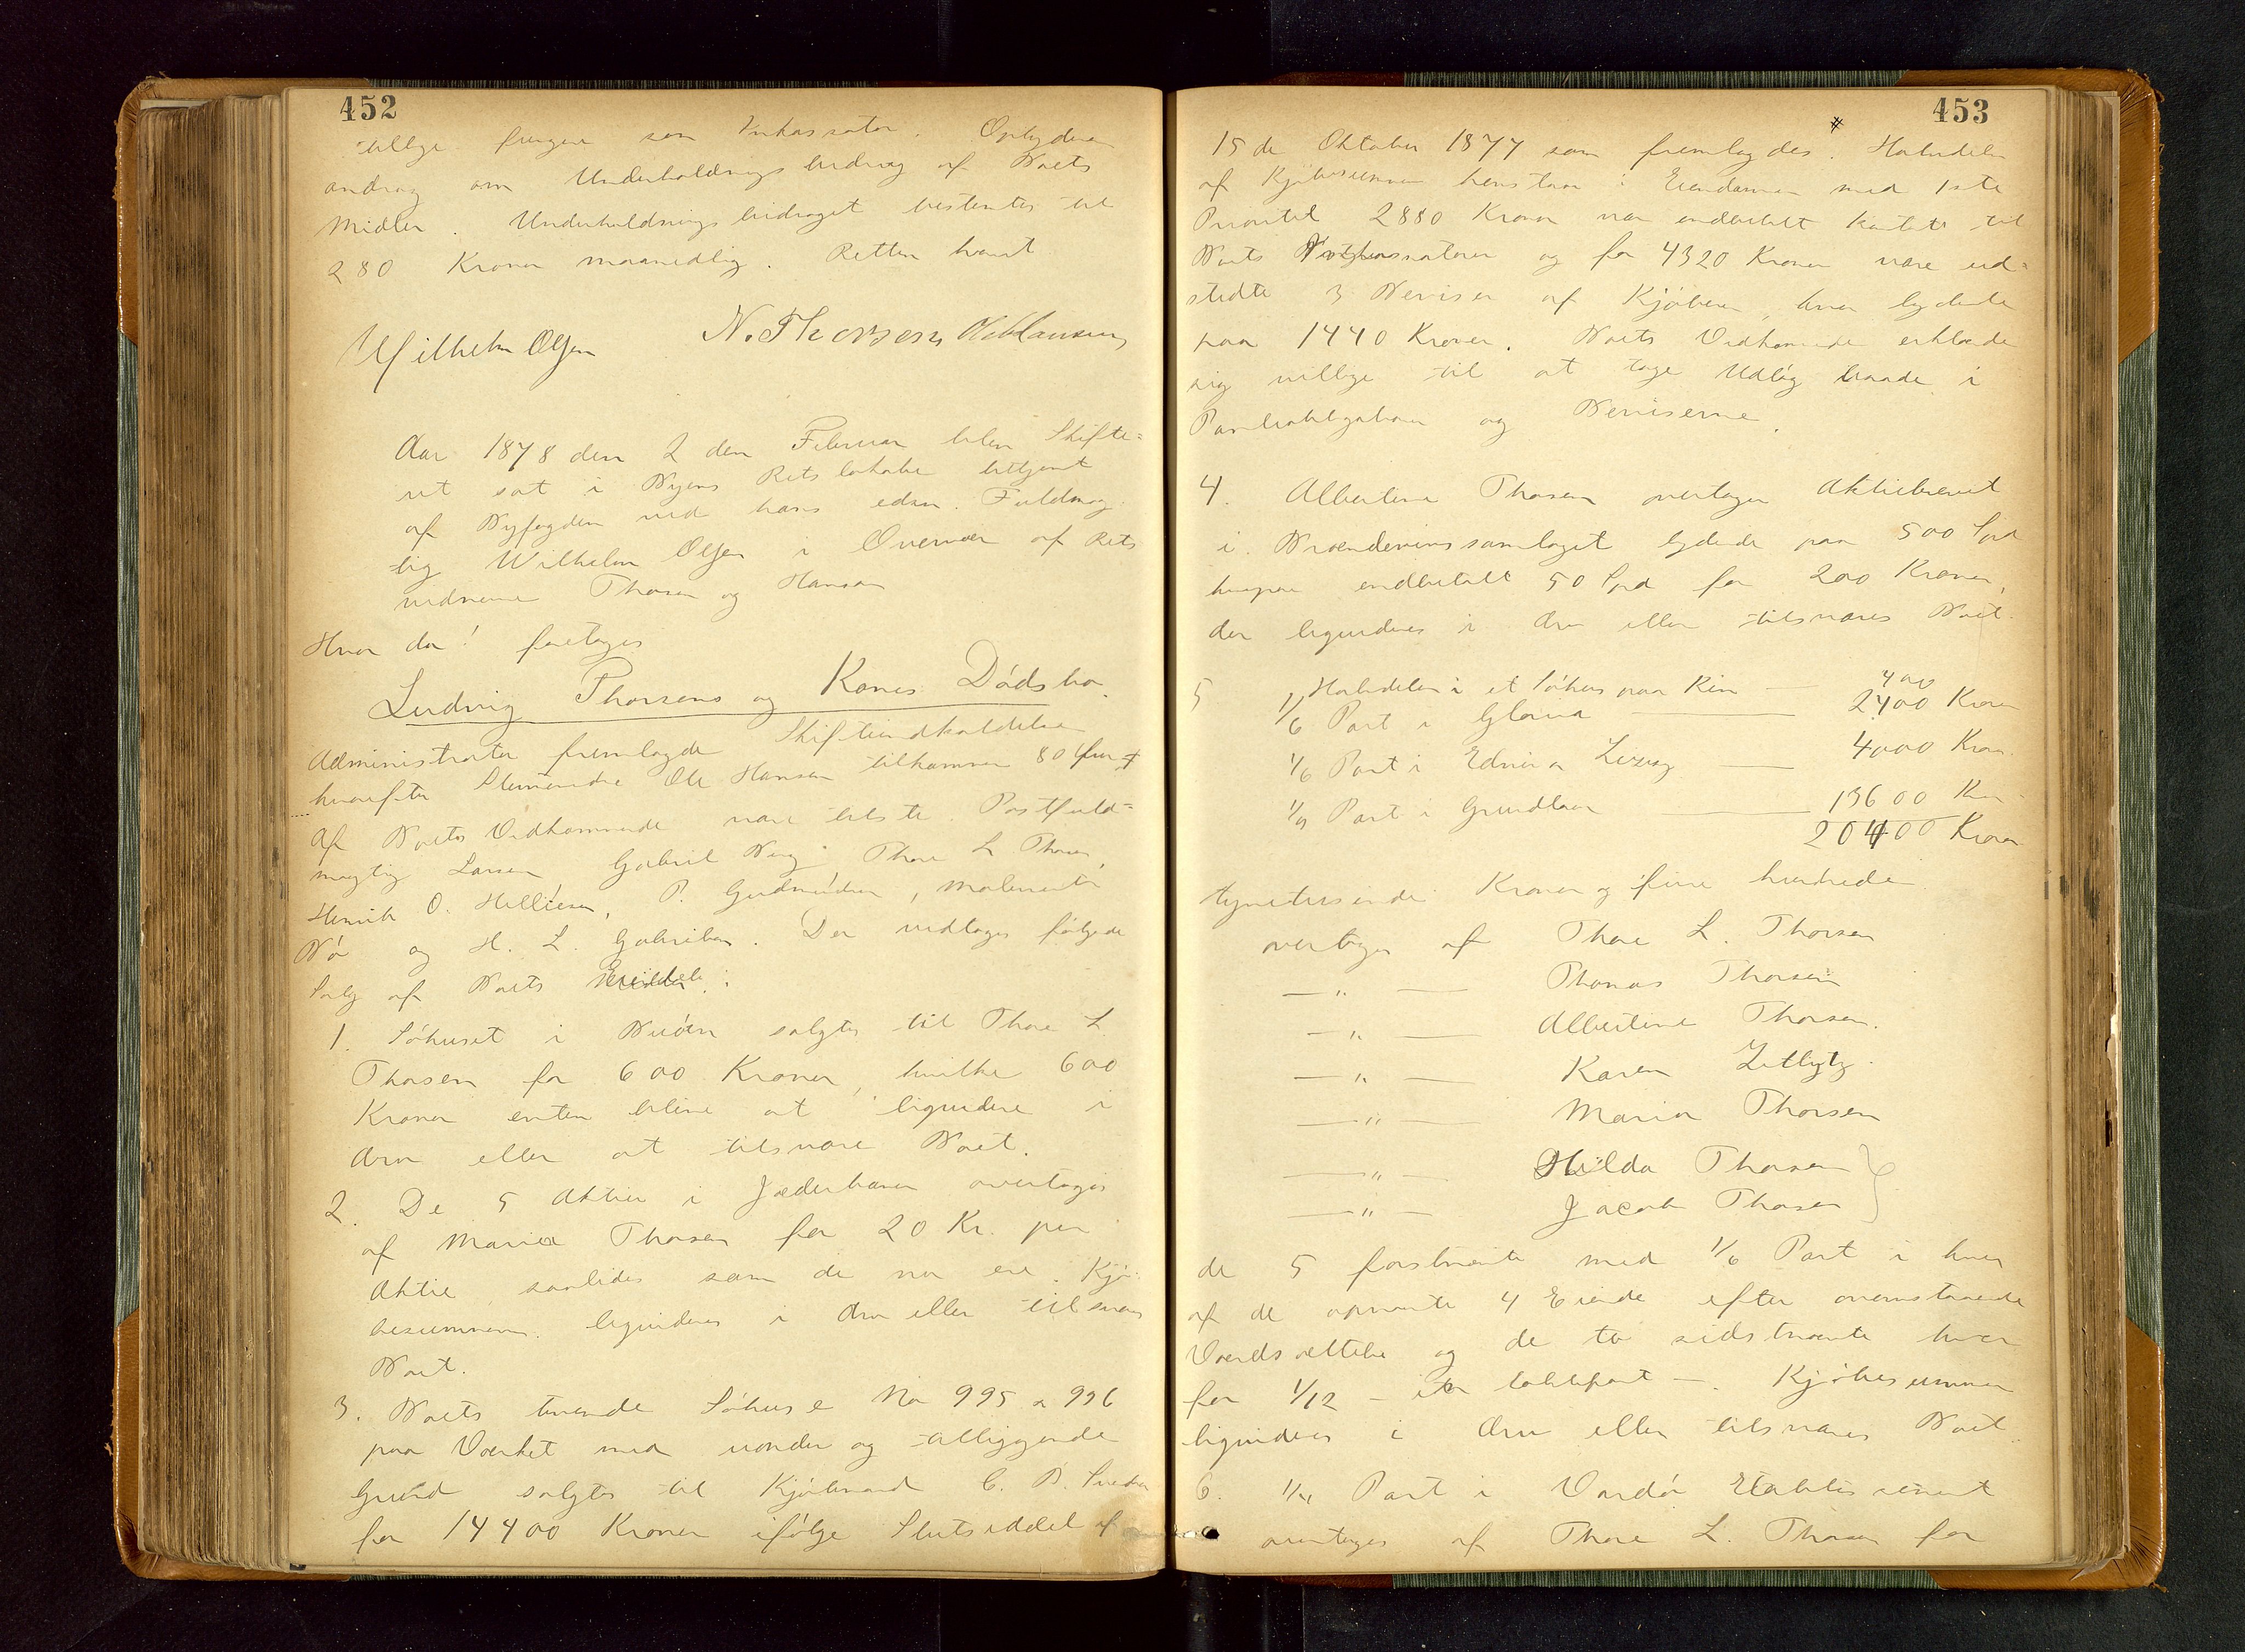 452
tillige fungere som Inkassator. Opbyderen
androg om Underholdningsbidrag af Boets
Midler. Underholdningsbidraget bestemtes til
280 Kroner maanedlig. Retten hævet
Wilhelm Olsen N. Thorsen
Aar 1878 den 2 den Februar blev Skifte-
ret sat i Byens Retslokale betjent
af Byfogden ved hans edsv. Fuldmæg
tig Wilhelm Olsen i Overvær af Rets
vidnerne Thorsen og Hansen
Hvor da! foretoges
Ludvig Thorsens og Kones Dødsbo.
Administrator fremlagde Skifteindkaldelse
hvorefter Ole Hansen tilkommer 80
Af Boets Vedkommende vare tilstede Postfuld-
mægtig Larsen Gabriel Berg Thore L. Thorsen,
Henrik O. Helliesen, P. Gudmundsen,
Bø og H. L. Gabrielsen. Der vedtoges følgende
Salg af Boets Eiendele:
1. Søhuset i Buøen solgtes til Thore L.
Thorsen for 600 Kroner, hvilke 600
Kroner enten blive at liquidere i
Arv eller at tilsvare Boet.
2. De 5 Aktier i Jæderbanen overtages
af Maria Thorsen for 20 Kr. per
Aktie saaledes som de nu ere. Kjø-
besummen liquideres i Arv eller tilsvares
Boet.
3. Boets tvende Søhuse No 995 a 996
paa Værket med under og tilliggende
Grund solgtes til Kjøbmand C. B. Svendsen
for 14400 Kroner ifølge Slutseddel af
453
15 de Oktober 1877 som fremlagdes. Halvdelen
af Kjøbesummen henstaar i Eiendommen med 1ste
Prioritet 2880 Kroner var indbetalt kontant til
Boets Inkassatorer og for 4320 Kroner vare ud-
stedte 3 Beviser af Kjøberen, hver lydende
paa 1440 Kroner. Boets Vedkommende erklærede
sig villige til at tage Udlæg baade i
Panteobligationen og Beviserne.
4. Albertine Thorsen overtager Aktiebrevet
i Brænderiinssamlaget lydende paa 500 Spd
hvorpaa indbetalt 50 Spd for 200 Kroner,
der liquideres i Arv eller tilsvares Boet.
5 Halvdelen i et Søhus paa Ren — 400
1/6 Part i Gloria — 2400 Kroner
1/6 Part i Edvin a Lizzy — 4000 Kron.
1/9 Part i Grundloven — 13600 Kr.
20400 Kroner
tyvetusinde Kroner og fire hundrede
overtages af Thore L. Thorsen
— " — Thomas Thorsen
— " — Albertine Thorsen.
— " — Karen Zetlitz.
— " — Maria Thorsen
— " — Hilda Thorsen }
— " — Jacob Thorsen }
de 5 førstnævnte med 1/6 Part i hver
af de opnævnte 4 Eiende efter ovenstaaende
Værdsættelse og de to sidstnævnte hver
for 1/12 — en toltepart —. Kjøbesummen
liquideres i Arv eller tilsvares Boet.
6. Part i Vardø Etablissement
overtages af Thore L. Thorsen for